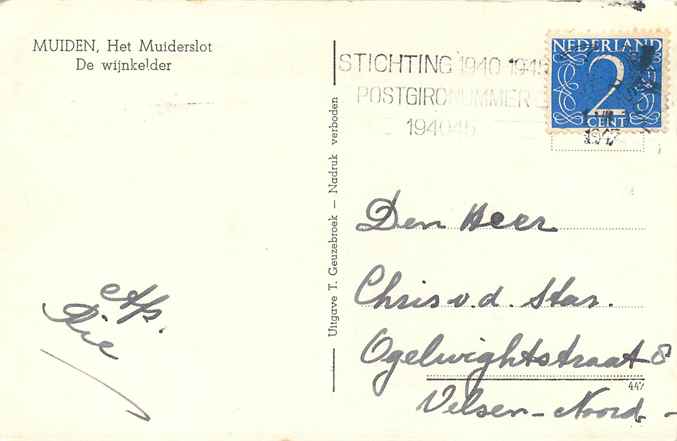 MUIDEN, Het Muiderslot
De wijnkelder
Uitgave T. Geuzebroek — Nadruk verboden
STICHTING 1940 1945
POSTGIRONUMMER
194045
NEDERLAND
2
CENT
Den Heer
Chris v.d. Star.
Ogelwightstraat 8
447
Velsen-Noord-
Afz.
Rie